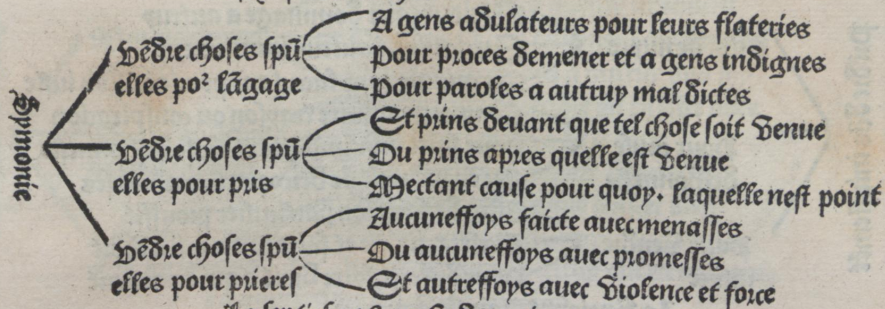 Symonie
Vēdre choses spũ
elles poꝛ lãgage
A gens adulateurs pour leurs flateries
Pour proces demener et a gens indignes
Pour paroles a autruy mal dictes
Vēdre choses spũ
elles pour pris
Et prins devant que tel chose soit venue
Ou prins apres quelle est venue
Mectant cause pour quoy. laquelle nest point
Vēdre choses spũ
elles pour prieres
Aucuneffoys faicte avec menasses
Ou aucuneffoys avec promesses
Et autreffoys avec violence et force